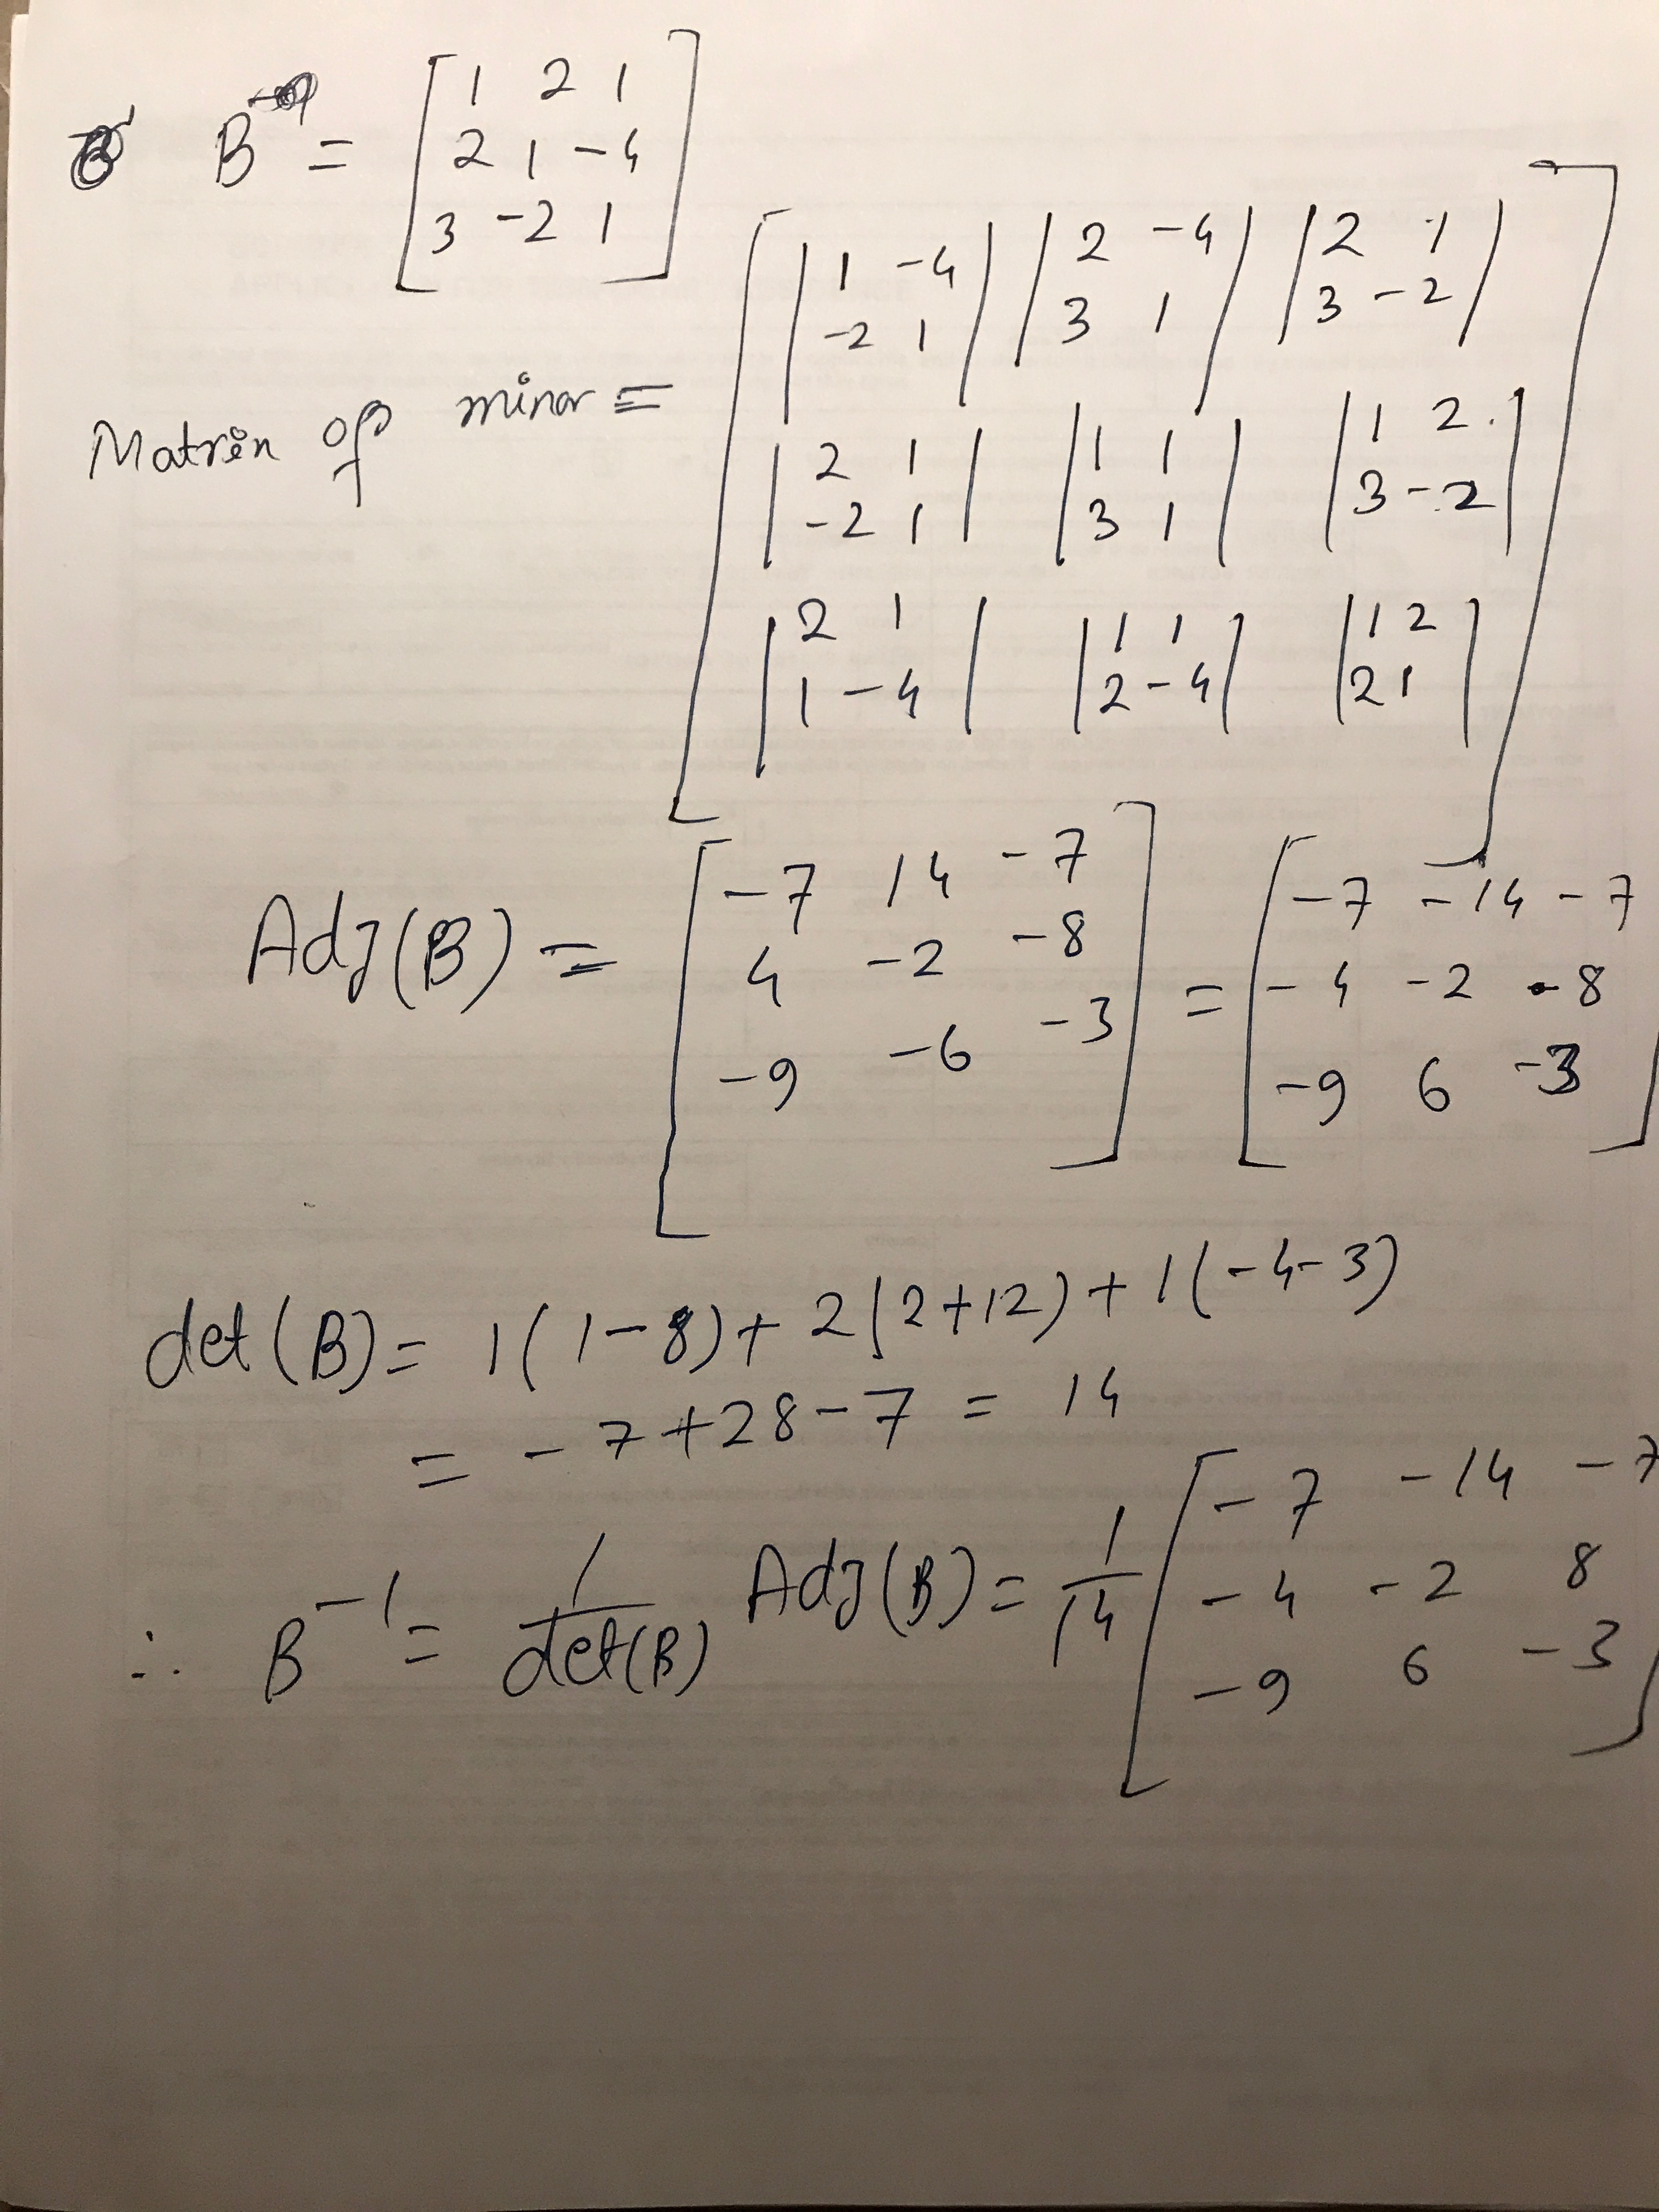 B = [ 1 2 1
2 1 -4
3 -2 1 ]
Matrix of minor = [ | 1 -4 | | 2 -4 | | 2 1 |
| -2 1 | | 3 1 | | 3 -2 |
| 2 1 | | 1 1 | | 1 2 |
| -2 1 | | 3 1 | | 3 -2 |
| 2 1 | | 1 1 | | 1 2 |
| 1 -4 | | 2 -4 | | 2 1 | ]
Adj(B) = [ -7 14 -7 = [ -7 -14 -7
4 -2 -8 -4 -2 -8
-9 -6 -3 ] -9 6 -3 ]
det(B) = 1(1-8) + 2(2+12) + 1(-4-3)
= -7+28-7 = 14
∴ B^-1 = 1/det(B) Adj(B) = 1/14 [ -7 -14 -7
-4 -2 8
-9 6 -3 ]